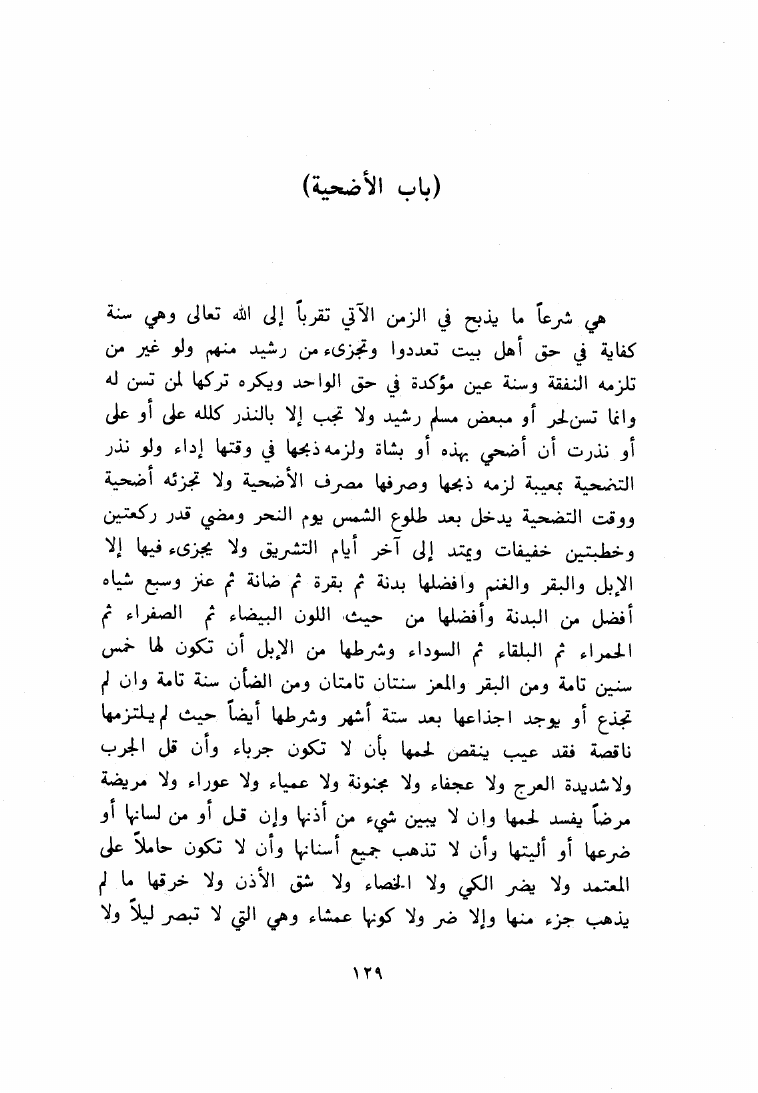 (باب الأضحية)
هي شرعاً ما يذبح في الزمن الآتي تقرباً إلى الله تعالى وهي سنة
كفاية في حق أهل بيت تعددوا وتجزىء من رشيد منهم ولو غير من
تلزمه النفقة وسنة عين مؤكدة في حق الواحد ويكره تركها لمن تسن له
وانما تسن لحر أو مبعض مسلم رشيد ولا تجب إلا بالنذر كلله علي أو علي
أو نذرت أن أضحي بهذه أو بشاة ولزمه ذبحها في وقتها إداء ولو نذر
التضحية بمعيبة لزمه ذبحها وصرفها مصرف الأضحية ولا تجزئه أضحية
ووقت التضحية يدخل بعد طلوع الشمس يوم النحر ومضي قدر ركعتين
وخطبتين خفيفات ويمتد إلى آخر أيام التشريق ولا يجزىء فيها إلا
الإبل والبقر والغنم وافضلها بدنة ثم بقرة ثم ضانة ثم عنز وسبع شياه
أفضل من البدنة وأفضلها من حيث اللون البيضاء ثم الصفراء ثم
الحمراء ثم البلقاء ثم السوداء وشرطها من الإبل أن تكون لها خمس
سنين تامة ومن البقر والمعز سنتان تامتان ومن الضأن سنة تامة وان لم
تجذع أو يوجد اجذاعها بعد ستة أشهر وشرطها أيضاً حيث لم يلتزمها
ناقصة فقد عيب ينقص لحمها بأن لا تكون جرباء وأن قل الجرب
ولا شديدة العرج ولا عجفاء ولا مجنونة ولا عمياء ولا عوراء ولا مريضة
مرضاً يفسد لحمها وان لا يبين شيء من أذنها وإن قل أو من لسانها أو
ضرعها أو أليتها وأن لا تذهب جميع أسنانها وأن لا تكون حاملاً على
المعتمد ولا يضر الكي ولا الخصاء ولا شق الأذن ولا خرقها ما لم
يذهب جزء منها وإلا ضر ولا كونها عمشاء وهي التي لا تبصر ليلاً ولا
١٢٩